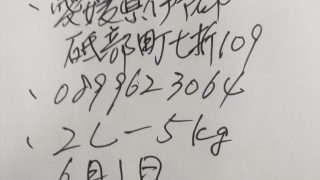 、愛媛県伊予郡
砥部町七折109
、0899623064
、2L-5kg
6月1日